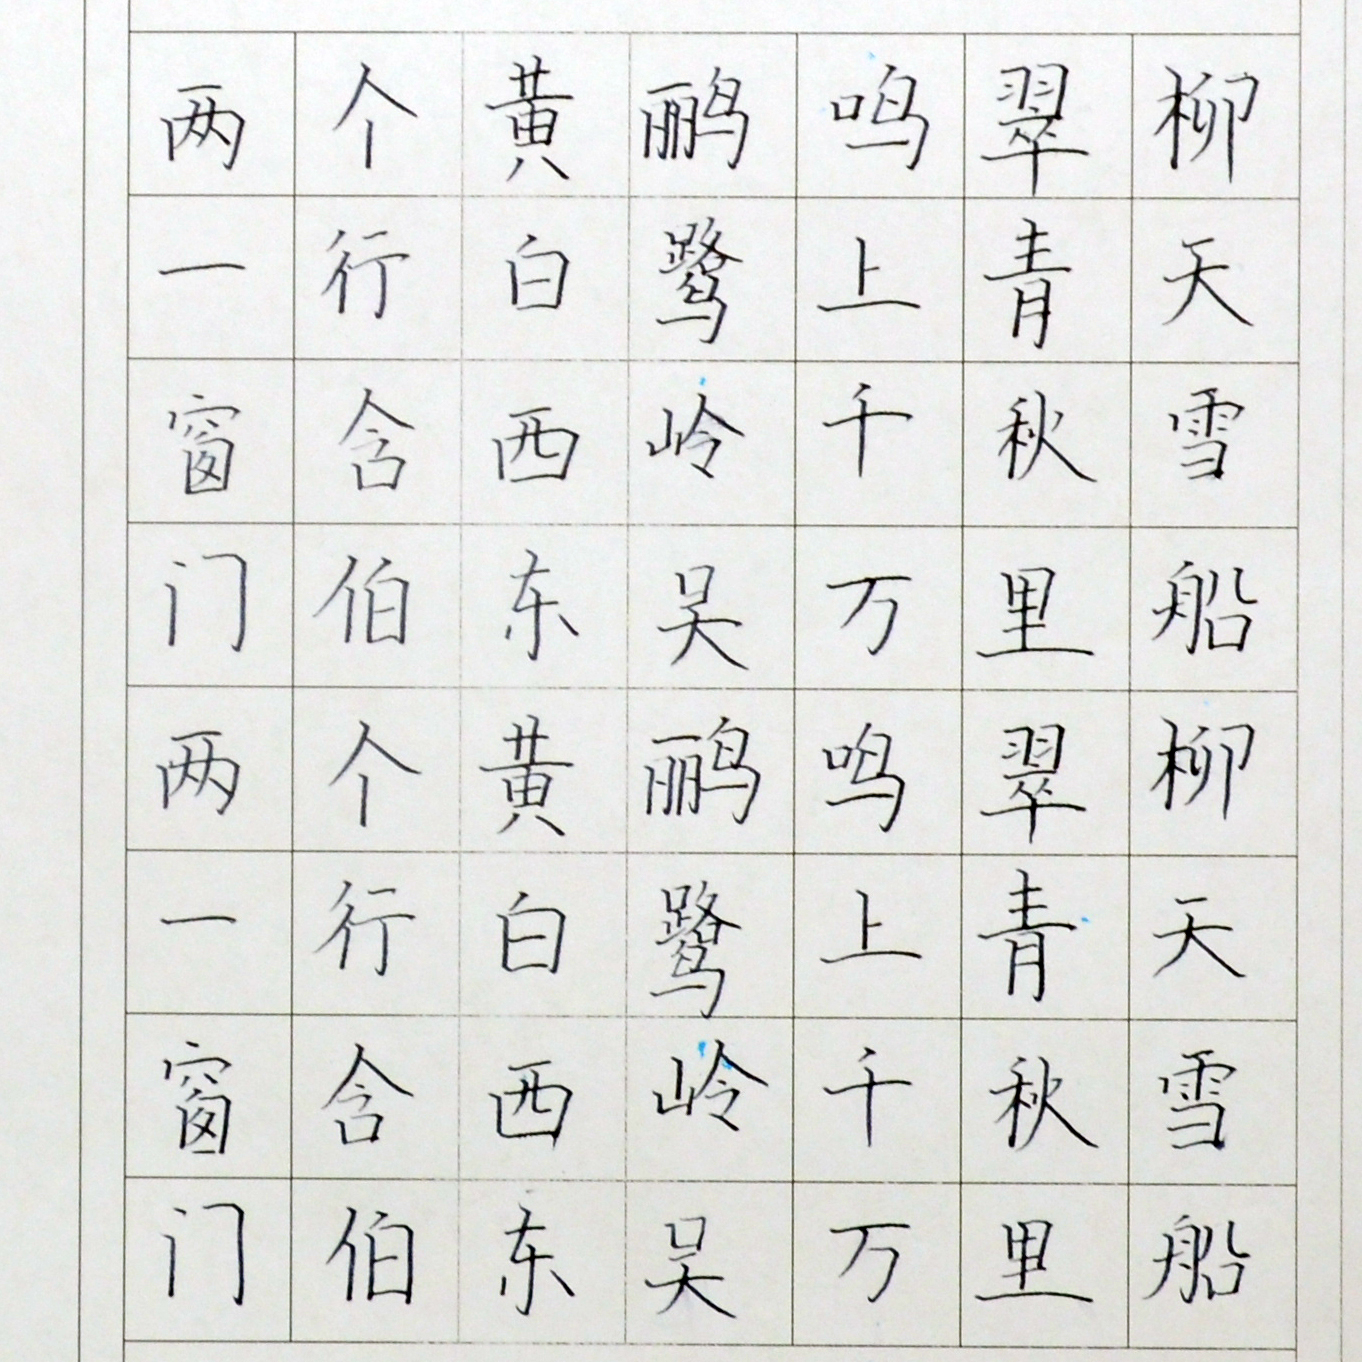 两个黄鹂鸣翠柳
一行白鹭上青天
窗含西岭千秋雪
门伯东吴万里船
两个黄鹂鸣翠柳
一行白鹭上青天
窗含西岭千秋雪
门伯东吴万里船